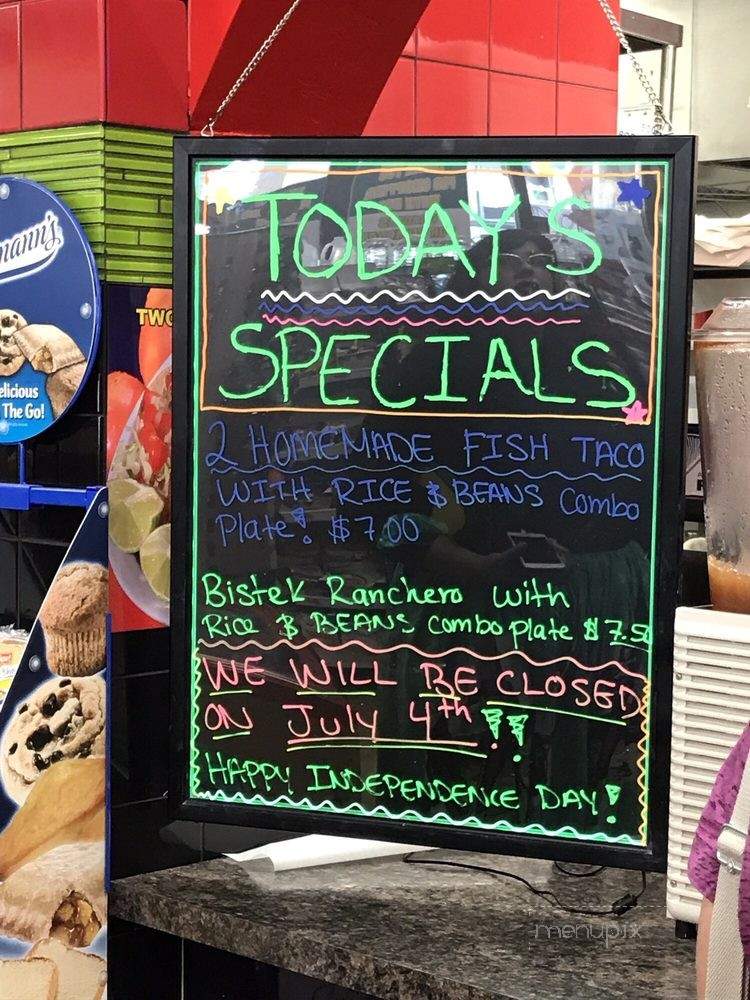 TODAY'S
SPECIALS
2 HOMEMADE FISH TACO
WITH RICE & BEANS combo
Plate! $7.00
Bistek Ranchero with
Rice & BEANS combo plate $7.50
WE WILL BE CLOSED
ON July 4th !!
HAPPY INDEPENDENCE DAY!
mann's
elicious
The Go!
TWO
menupix